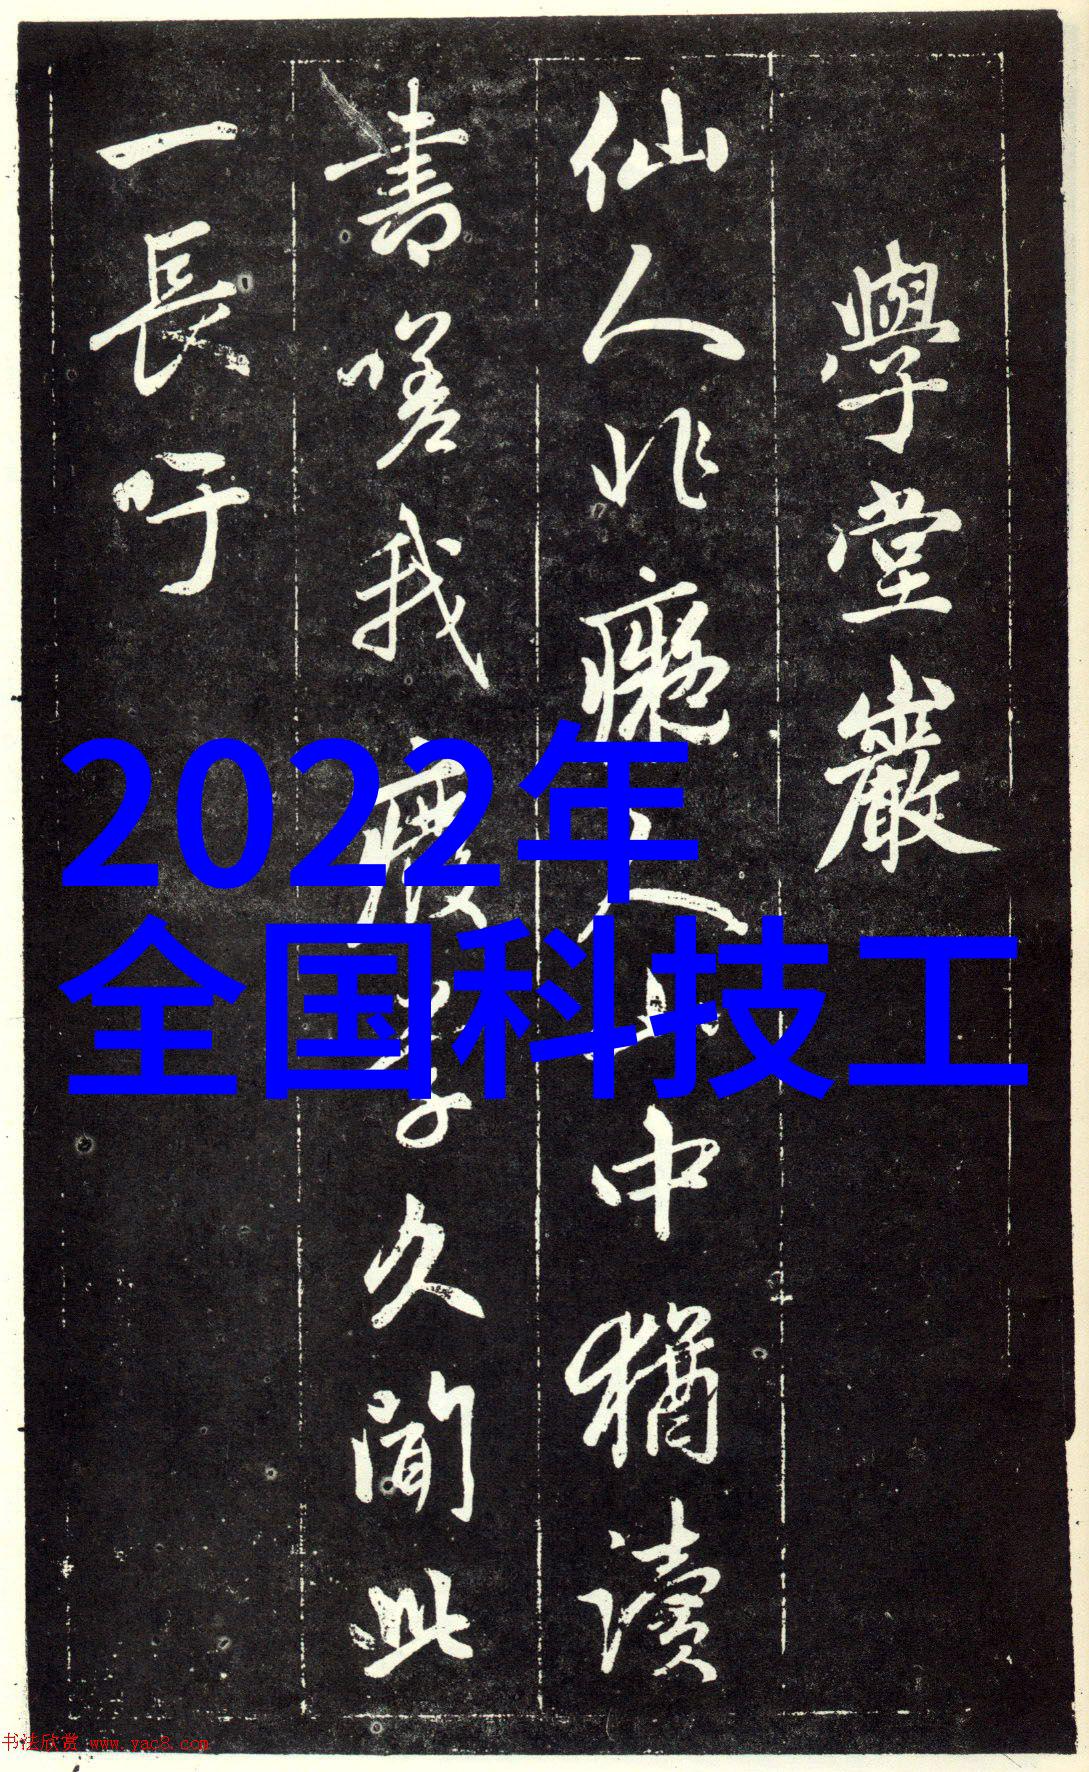 學堂巖
仙人非癡人山中猶讀
書嗟我廢學久聞此
一長吁
2022年
全国科技工
书法欣赏 www.yac8.com